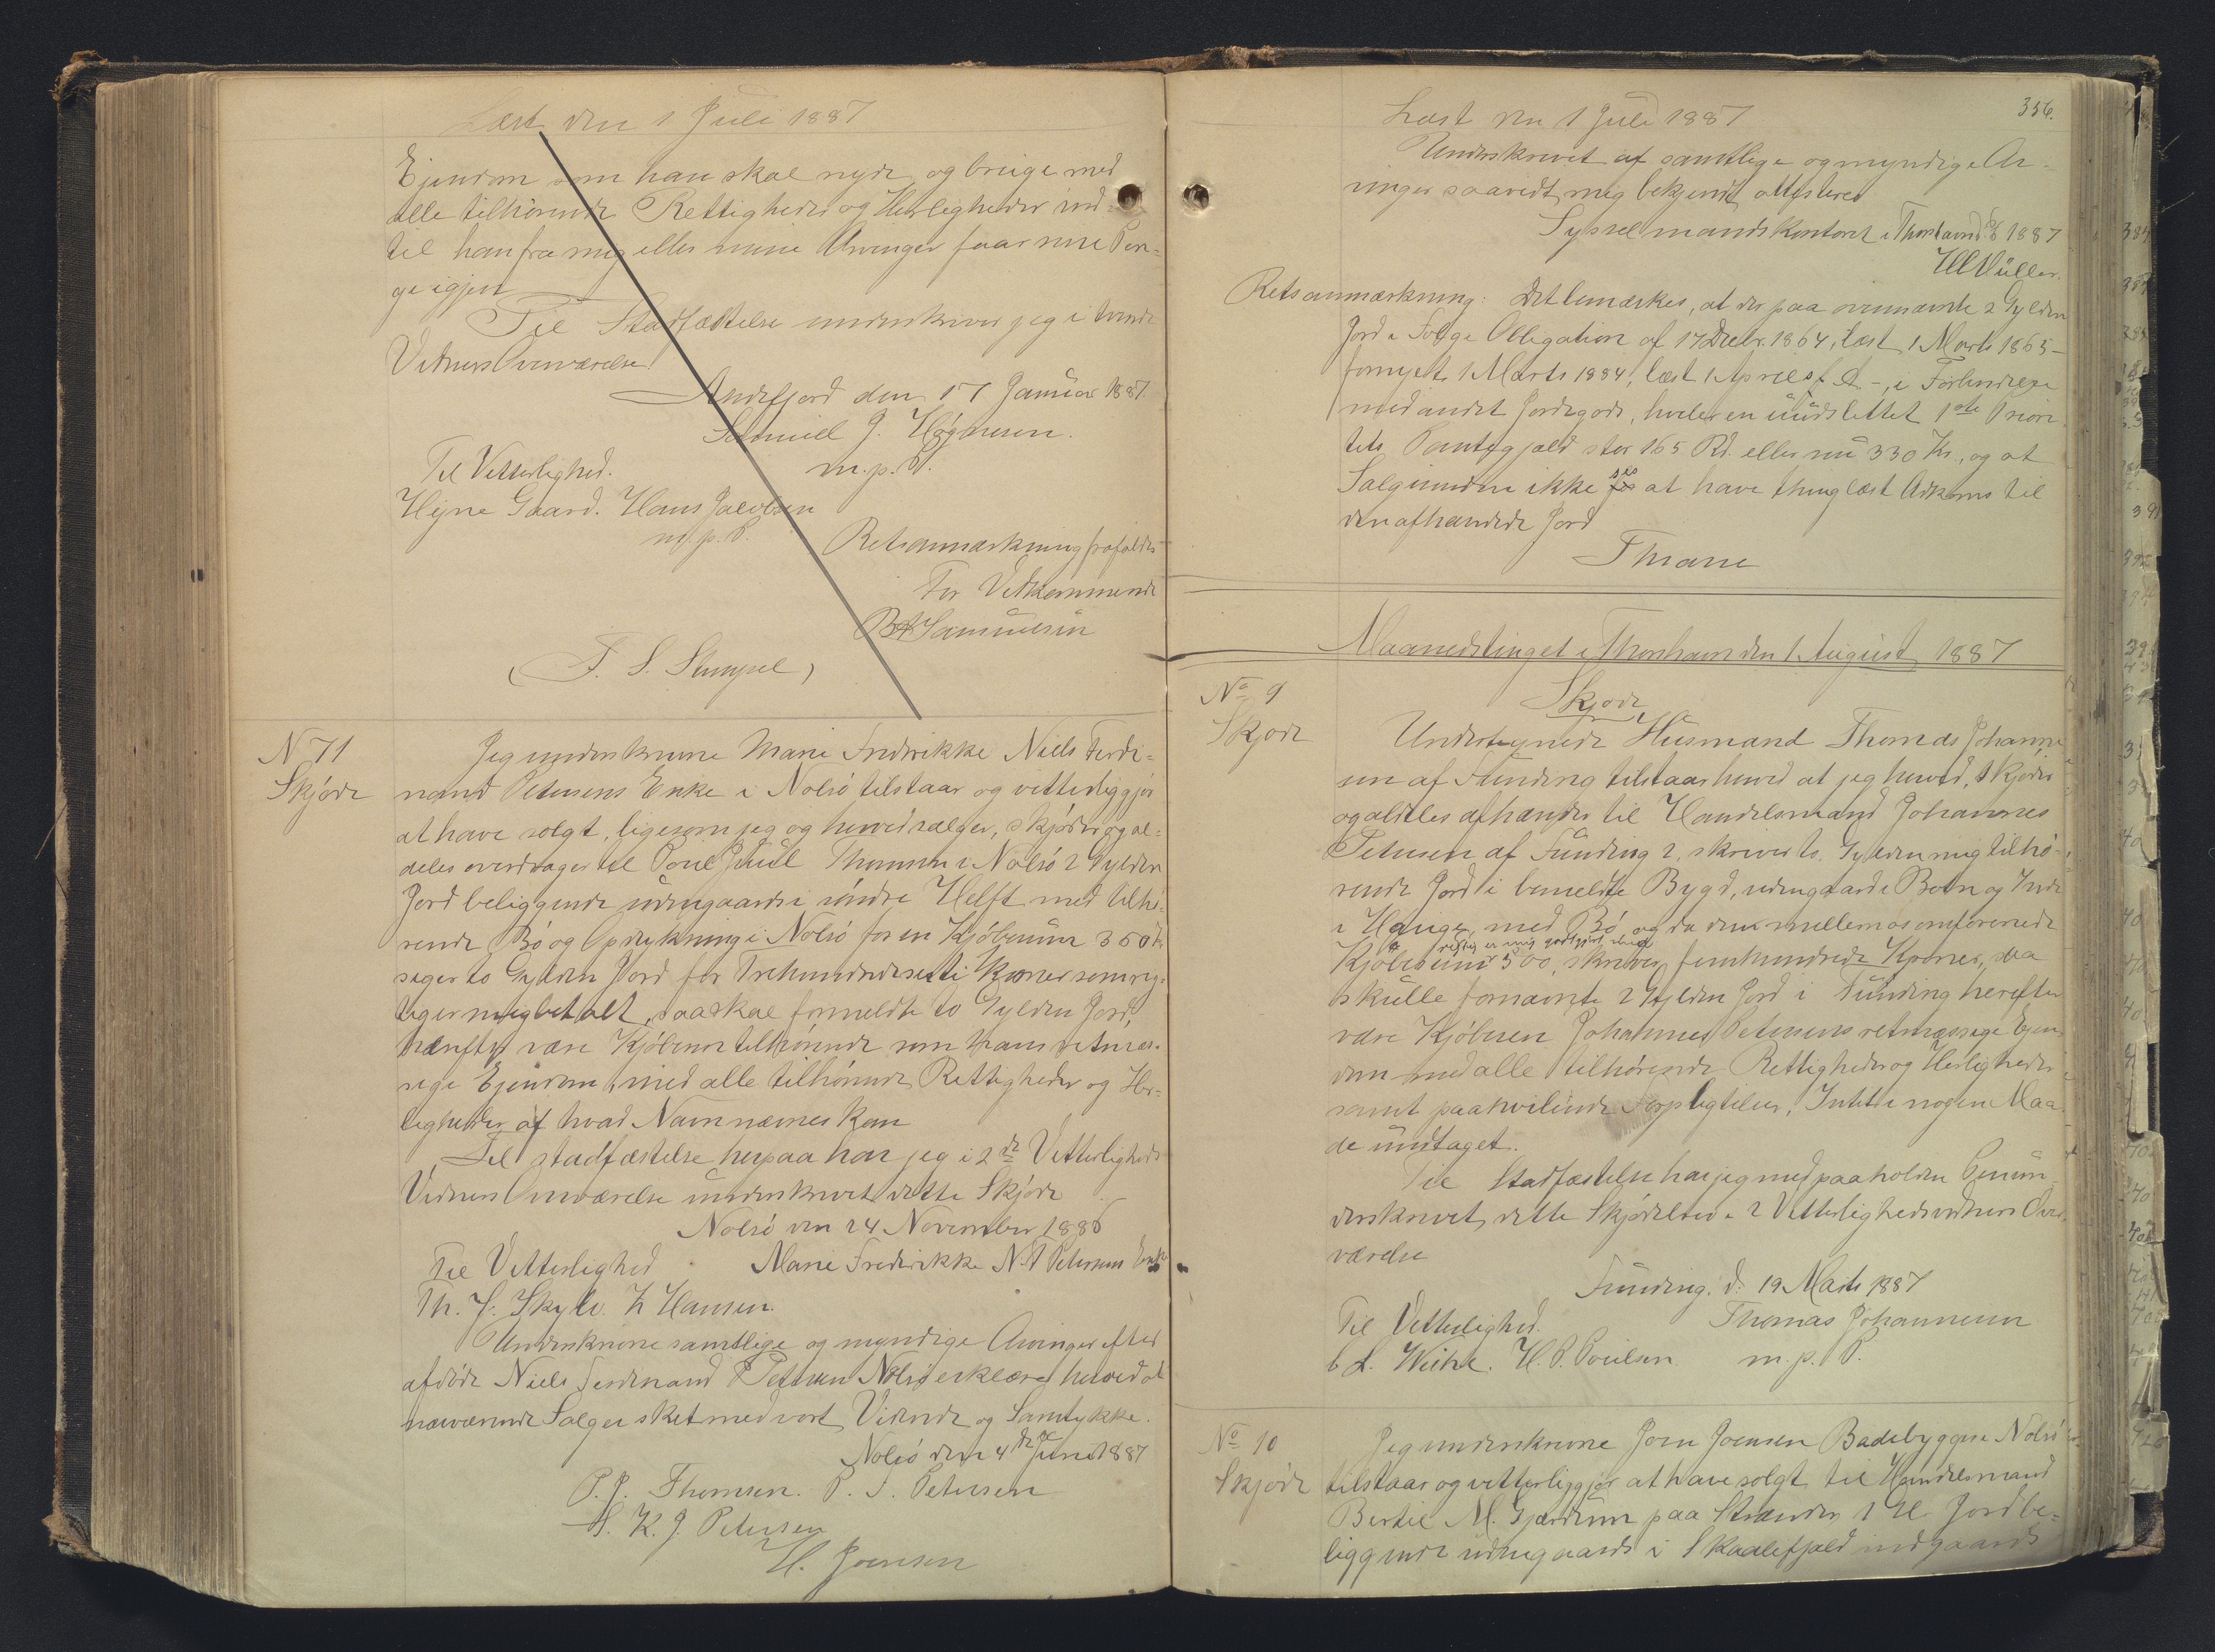 Læst den 1 Juli 1887
Ejendom som han skal nyde og bruge med
alle tilhørende Rettigheder og Herligheder ind-
til han fra mig eller mine Arvinger faar sine Pen-
ge igjen
Til Stadfæstelse underskriver jeg i tvende
Vidners Overværelse
Andefjord den 17 Januar 1887.
Samuel J. Høgnesen.
m.p.P.
Til Vitterlighed.
Hejne Gaard. Hans Jacobsen
m.p.P.
Retsanmærkning frafaldes
For Vedkommende
Samuelsen
(F. S. Stempel)
N 71
Skjøde
Jeg underskrevne Marie Fredrikke Niels Ferdi-
nand Petersens Enke i Nolsø tilstaar og vitterliggjør
at have solgt, ligesom jeg og herved sælger, skjøder og al-
deles overdrager til Poul Juul Thomsen i Nolsø 2 Gylden
Jord beliggende udengaards i søndre Helft med tilhø-
rende Bø og Opdykning i Nolsø for en Kjøbesum 360 Kr
siger to Gylden Jord for Trehundredesexti Kroner som rig-
tig er mig betalt, saa skal formeldte to Gylden Jord,
herefter være Kjøberen tilhørende som hans retmæs-
sige Ejendom, med alle tilhørende Rettigheder og Her-
ligheder af hvad Navn nævnes kan
Til stadfæstelse herpaa har jeg i 2de Vitterligheds
Vidners Overværelse underskrevet dette Skjøde
Nolsø den 24 November 1886
Til Vitterlighed Marie Frederikke N. F Petersens Enke
Th. J. Skylv. H Hansen.
Underskrevne samtlige og myndige Arvinger efter
afdøde Niels Ferdinand Petersen Nolsø erklærer herved at
nærværende Salg er sket med vort Vidende og Samtykke.
Nolsø den 4de Juni 1887
P. J. Thomsen. P. J. Petersen
S. K. J. Petersen
H. Joensen
Læst den 1 Juli 1887
356.
Underskrevet af samtlige og myndige Ar-
vinger saavidt mig bekjendt attesteres
Sysselmandskontoret i Thorshavn 1887
Müller.
Retsanmærkning: Det bemærkes, at der paa ovennævnte 2 Gylden
Jord i Følge Obligation af 17 Decbr. 1864, læst 1 Marts 1865 -
fornyet 1 Marts 1884, læst 1 April s. A. -, i Forbindelse
med andet Jordegods, hviler en uudslettet 1ste Priori-
tets Pantegjæld stor 165 Rd. eller nu 330 Kr., og at
Sælgerinden ikke ses at have thinglæst Adkomst til
den afhændede Jord
Thrane
Maanedstinget i Thorshavn den 1 August 1887
No 9
Skjøde
Skjøde
Undertegnede Husmand Thomas Johanne
sen af Funding tilstaar herved at jeg herved, skjøder
og aldeles afhænder til Handelsmand Johannes
Petersen af Funding 2, skriver to, Gylden mig tilhø-
rende Jord i bemeldte Bygd, udengaards i Botn og Inde
i Hauge, med Bø, og da den mellem os omforenede
rigtig er mig godtgjort med
Kjøbesum 500, skriver, femhundrede Kroner, saa
skulle fornævnte 2 Gylden Jord i Funding herefter
være Kjøberen Johannes Petersens retmæssige Ejen-
dom med alle tilhørende Rettigheder og Herligheder
samt paahvilende Forpligtelser, Intet i nogen Maa-
de undtaget.
Til Stadfæstelse har jeg med paaholden Pen un-
derskrevet dette Skjødebrev i 2 Vitterlighedsvidners Over-
værelse
Funding d: 19 Marts 1887
Til Vitterlighed. Thomas Johannesen
L. Weihe. H. P. Poulsen m.p.P.
No 10
Skjøde
Jeg underskrevne Joen Joensen Baadebygger Nolsø
tilstaar og vitterliggjør at have solgt til Handelsmand
Bertil M. Gjerdum paa Strænder 1 Gl. Jord be-
liggende udengaards i Skaalefjeld indgaards